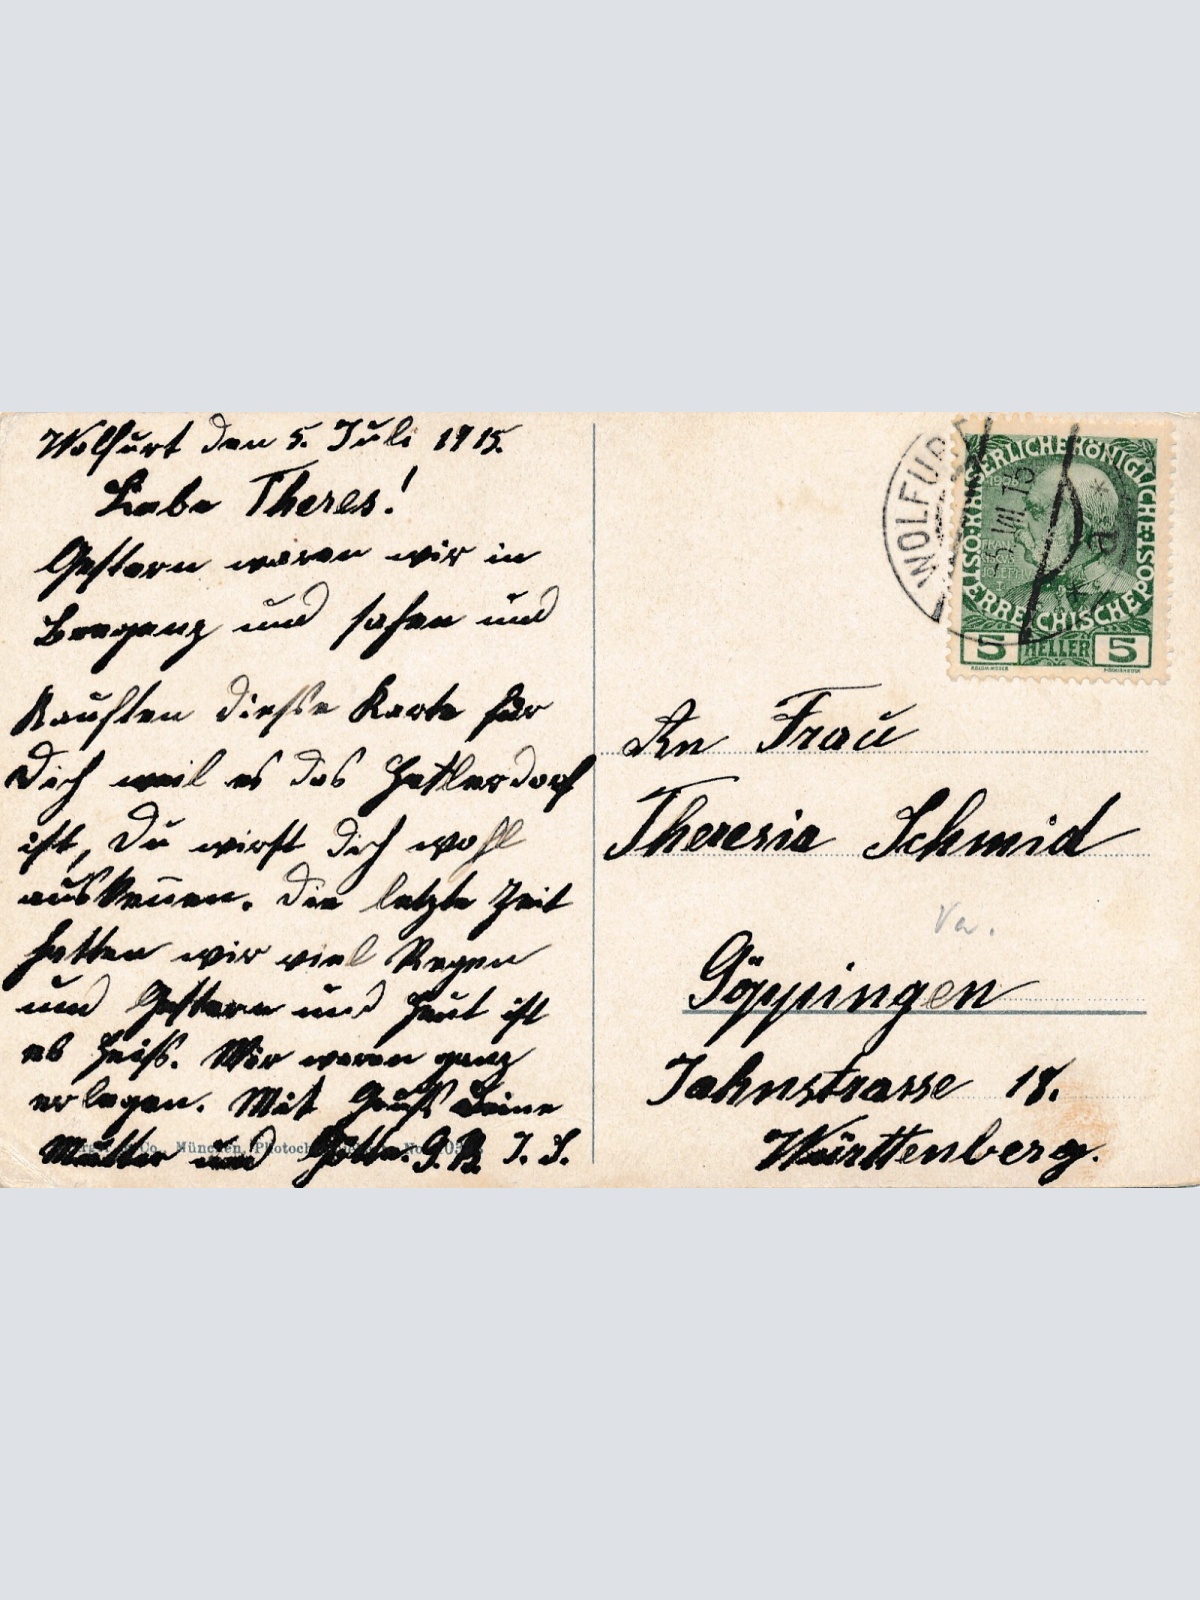 Wolfurt den 5. Juli 1915.
Liebe Theres!
Gestern waren wir in
Bregenz und sahen und
kauften diesse Karte für
Dich weil es das Hattlerdorf
ist, Du wirst dich wohl
auskennen. Die letzte Zeit
hatten wir viel Regen
und Gestern und Heut ist
es heiss. Wir waren ganz
erlegen. Mit Gruss Deine
Mutter und Gotta. G. B. J. S.
Co., München, Photoch
WOLFURT
5. VII. 15
a
KAISERLICHE KÖNIGLICHE ÖSTERREICHISCHE POST
1908
FRANZ
JOSEF I
5 HELLER 5
An Frau
Theresia Schmid
Göppingen
Jahnstrasse 18.
Württenberg.